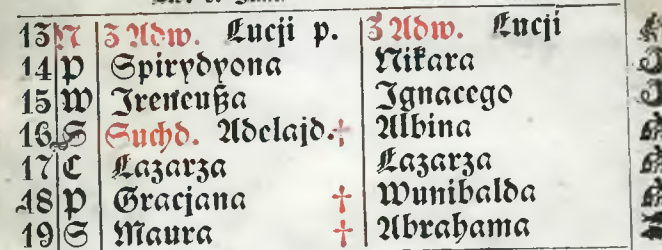 13 N 3 Adw. Łucji p. 3 Adw. Łucji
14 P Spirydyona Nikara
15 W Ireneußa Ignacego
16 S Suchd. Adelajd. † Albina
17 C Łazarza Łazarza
18 P Gracjana † Wunibalda
19 S Maura † Abrahama